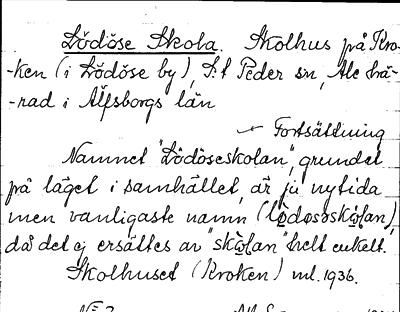 Lödöse Skola. Skolhus på Kro-
-ken (i Lödöse by), S:t Peder sn, Ale hä-
-rad i Älfsborgs län
Fortsättning
Namnet "Lödöseskolan", grundet
på läget i samhället, är ju nytida
men vanligaste namn
då det ej ersättes av helt enkelt.
Skolhuset (Kroken) ml. 1936.